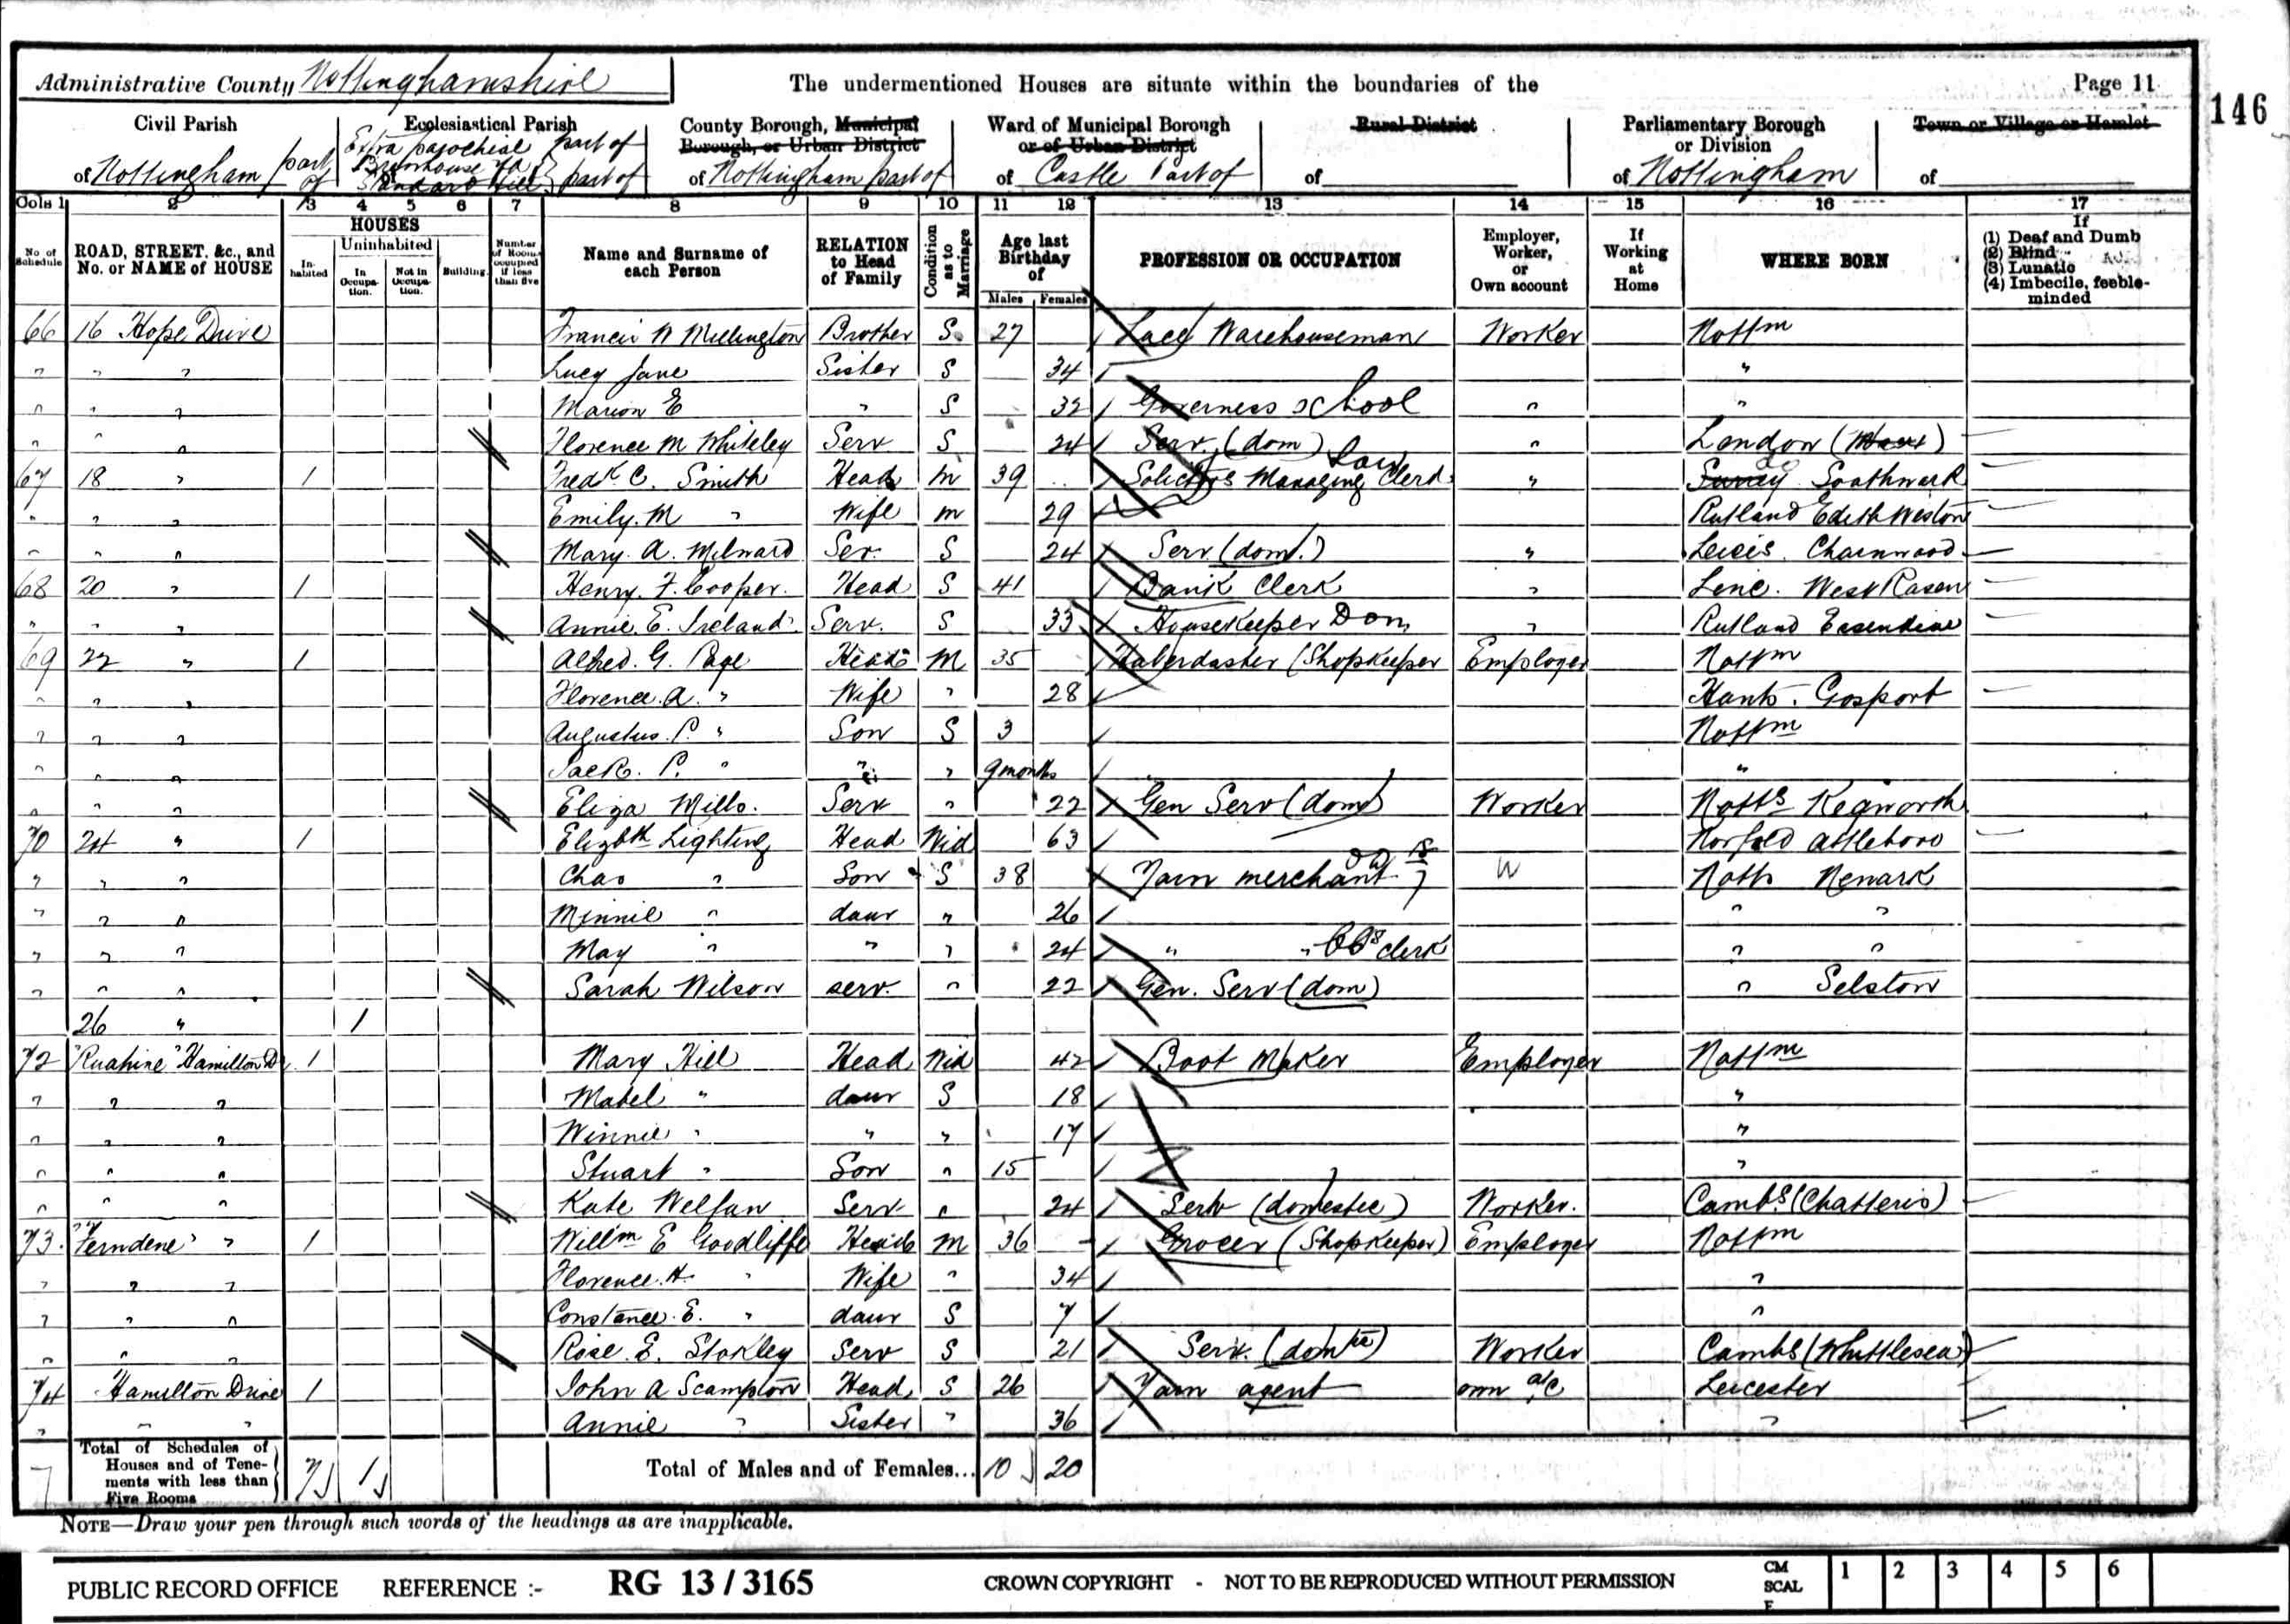 Administrative County Nottinghamshire The undermentioned Houses are situate within the boundaries of the Page 11
146
Civil Parish Ecclesiastical Parish County Borough, Municipal Borough, or Urban District Ward of Municipal Borough or of Urban District Rural District Parliamentary Borough or Division Town or Village or Hamlet
of Nottingham part of Extra parochial part of Standard Hill part of of Nottingham part of of Castle Part of of of Nottingham of
Cols 1 2 3 4 5 6 7 8 9 10 11 12 13 14 15 16 17
No of Schedule ROAD, STREET, &c., and No. or NAME of HOUSE HOUSES Inhabited Uninhabited In Occupation. Not in Occupation. Building. Number of Rooms occupied if less than five Name and Surname of each Person RELATION to Head of Family Condition as to Marriage Age last Birthday of Males Females PROFESSION OR OCCUPATION Employer, Worker, or Own account If Working at Home WHERE BORN If (1) Deaf and Dumb (2) Blind (3) Lunatic (4) Imbecile, feeble-minded
66 16 Hope Drive Francis W Millington Brother S 27 Lace Warehouseman Worker Nottm
" " " Lucy Jane Sister S 34 "
" " " Marion E " S 32 Governess School " "
" " " Florence M Whiteley Serv S 24 Serv. (dom) " London
67 18 " 1 Fredk C. Smith Head M 39 Solicitors Managing Clerk Law " Surrey Southwark
" " " Emily. M " Wife M 29 Rutland Edith Weston
" " " Mary. A. Milward Ser. S 24 Serv (dom.) " Leics. Charnwood
68 20 " 1 Henry. F. Cooper. Head S 41 Bank Clerk " Linc. West Rasen
" " " Annie. E. Ireland. Serv. S 33 Housekeeper Dom " Rutland Essendine
69 22 " 1 Alfred. G. Page Head M 35 Haberdasher (Shopkeeper Employer Nottm
" " " Florence. A. " Wife " 28 Hants. Gosport
" " " Augustus. P. " Son S 3 Nottm
" " " Jack. P. " " " 9 months "
" " " Eliza Mills. Serv " 22 Gen Serv (dom) Worker Notts Kegworth
70 24 " 1 Elizbth Lighting Head Wid 63 Norfold Attleboro
" " " Chas " Son S 38 Yarn merchant W Notts Newark
" " " Minnie " daur " 26 " "
" " " May " " " 24 " " Clerk " "
" " " Sarah Wilson serv. " 22 Gen. Serv (dom) " Selston
26 " 1
72 "Ruahine" Hamilton Dr 1 Mary Hill Head Wid 42 Boot Maker Employer Nottm
" " " Mabel " daur S 18 "
" " " Winnie " " " 17 "
" " " Stuart " Son " 15 "
" " " Kate Welfan Serv " 24 Serv (domestic) Worker. Cambs (Chatteris)
73. "Ferndene" " 1 Willm E Goodliffe Head M 36 Grocer (Shopkeeper) Employer Nottm
" " " Florence. H. " Wife " 34 "
" " " Constance. E. " daur S 7 "
" " " Rose. E. Stokley Serv S 21 Serv. (domtic) Worker Cambs (Whittlesea)
74 Hamilton Drive 1 John A Scampton Head S 26 Yarn agent own a/c Leicester
" " " Annie " Sister " 36 "
7 Total of Schedules of Houses and of Tenements with less than Five Rooms 7 1 Total of Males and of Females... 10 20
NOTE—Draw your pen through such words of the headings as are inapplicable.
PUBLIC RECORD OFFICE REFERENCE :- RG 13 / 3165 CROWN COPYRIGHT - NOT TO BE REPRODUCED WITHOUT PERMISSION CM SCALE 1 2 3 4 5 6